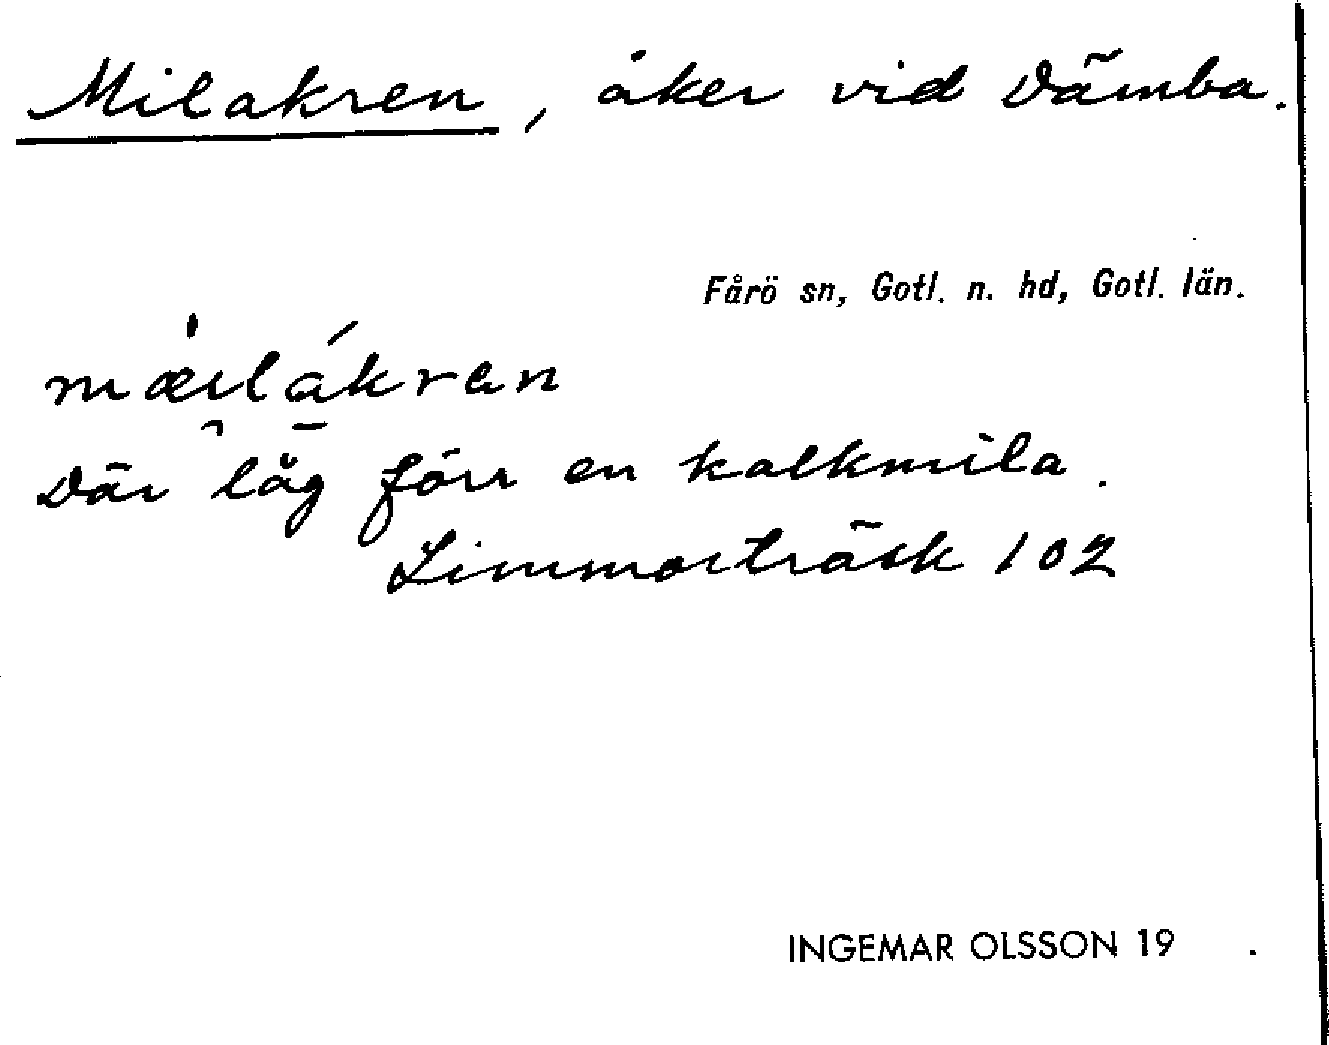 Milakren, åker vid Dämba.
Fårö sn, Gotl. n. hd, Gotl. län.
mæilákren
Där låg förr en kalkmila.
Limmorträsk 102
INGEMAR OLSSON 19 .